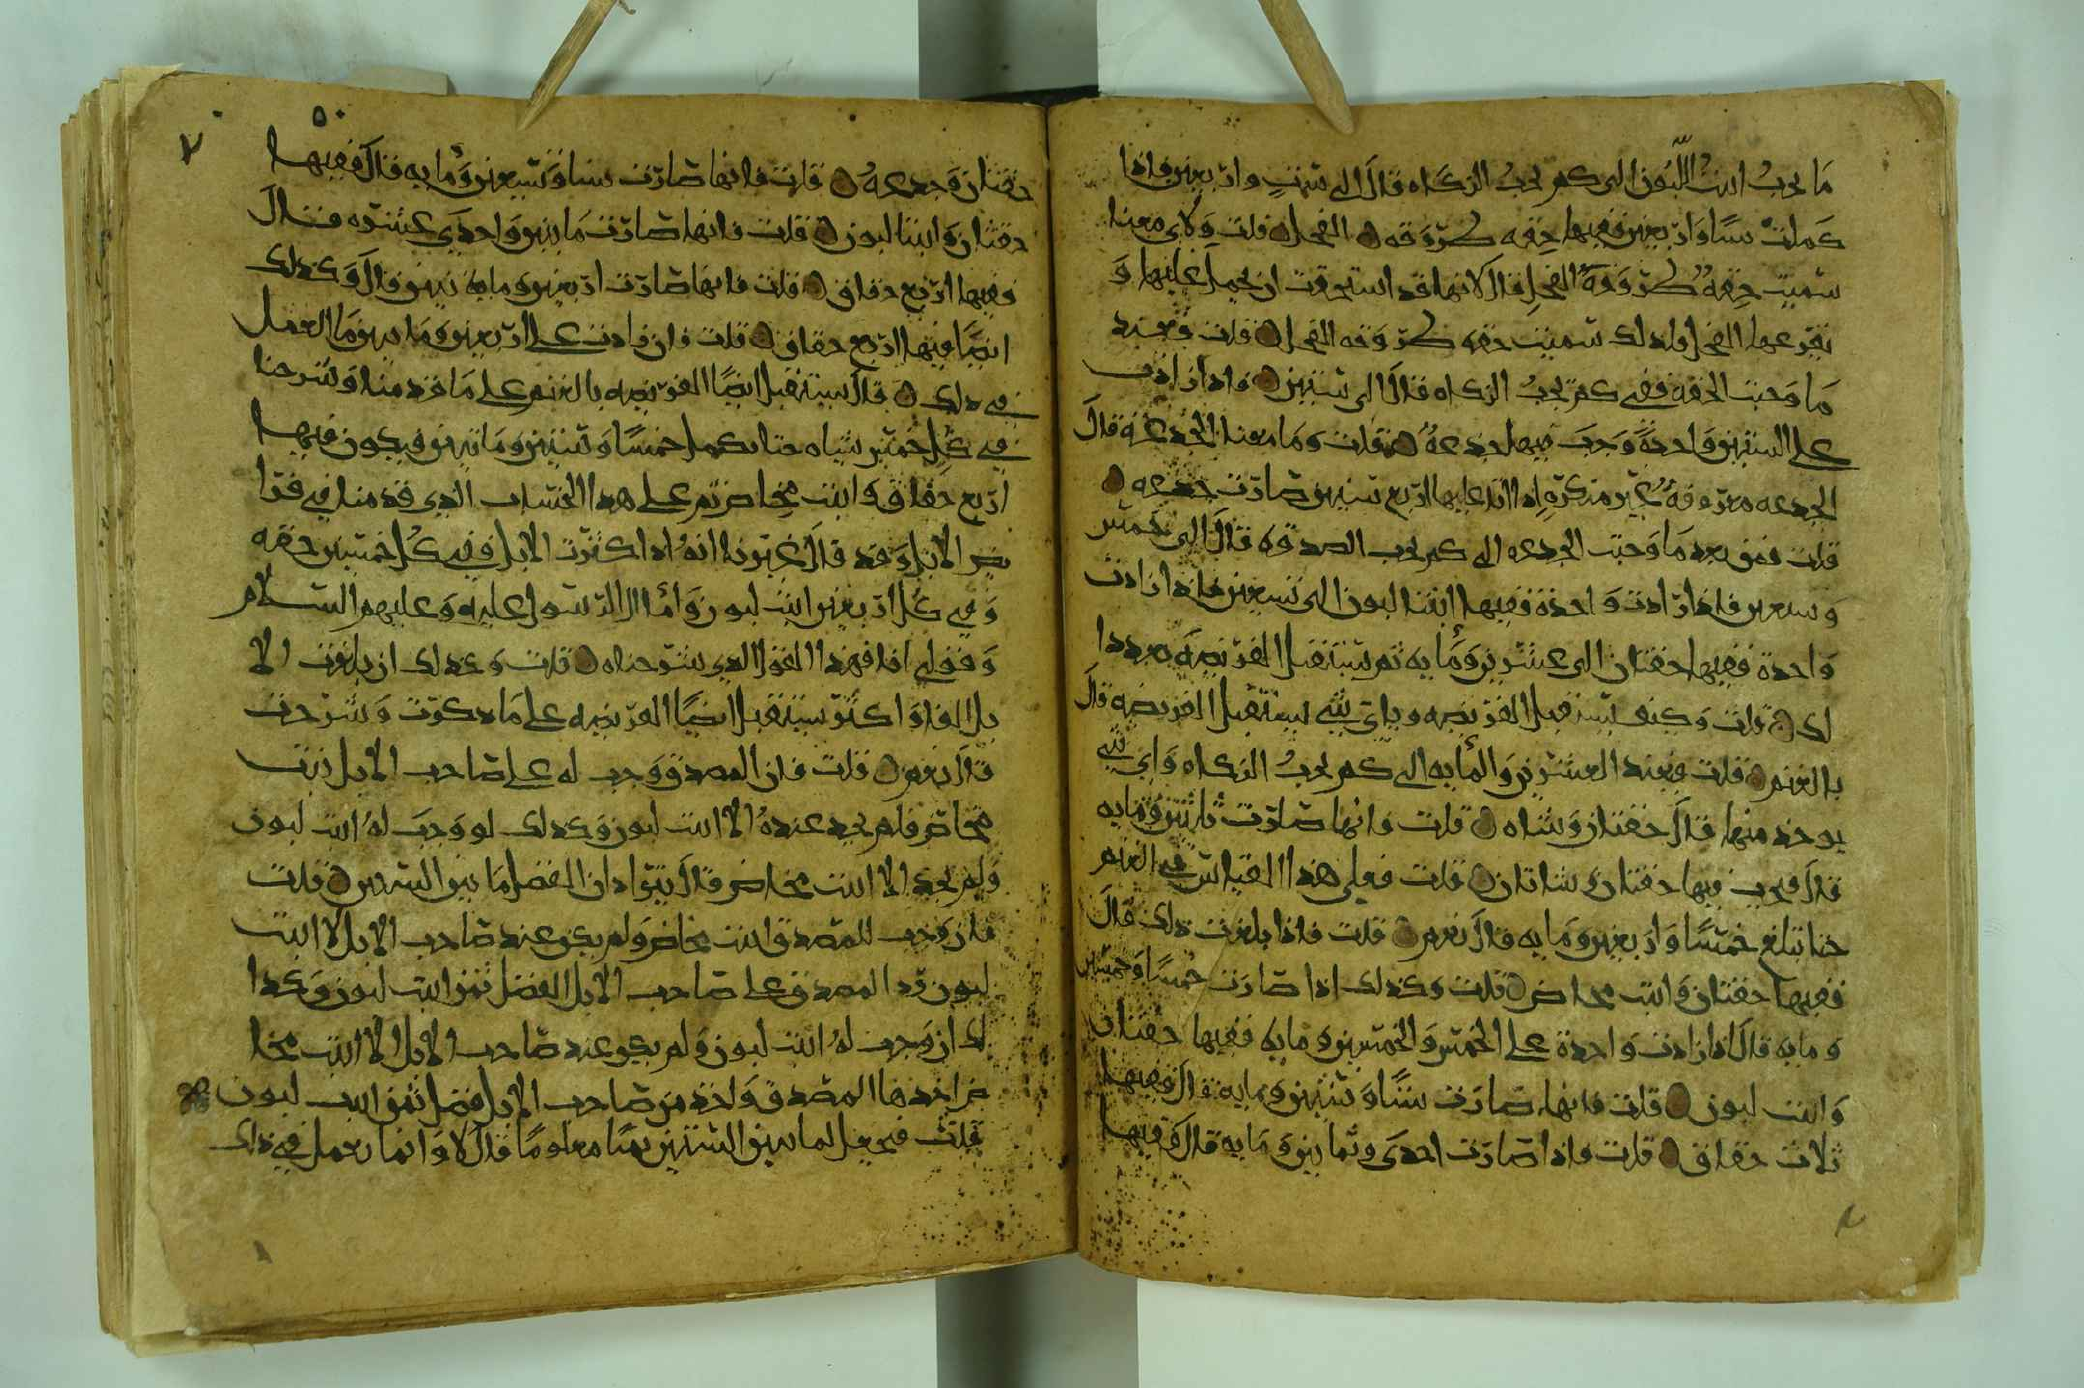 ما يجب ابنت اللبون الى كم يجب الزكاه قال الى ست واربعين فاذا
كملت ستا واربعين ففيها حقه طروقه الفحل قلت ولاى معنا
سميت حقه طروقه الفحل قال لانها قد استحقت ان يحمل عليها و
يقرعها الفحل فلذلك سميت حقه طروقه الفحل قلت فبعد
ما وجبت الحقه ففي كم تجب الزكاه قال الى ستين فاذا زادت
على الستين واحدة وجب فيها جذعة قلت وما معنا الجذعة قال
الجذعه معروفة غير منكرة اذا اتا عليها اربع سنين صارت جذعه
قلت فمن بعد ما وجبت الجذعه الى كم تجب الصدقه قال الى خمس
وسبعين فاذا زادت واحده ففيها ابنتا لبون الى تسعين فاذا زادت
واحدة ففيها حقتان الى عشرين ومايه ثم يستقبل الفريضه بعد ذا
لك قلت وكيف يستقبل الفريضه وباي شي يستقبل الفريضه قال
بالغنم قلت فبعد العشرين والمايه الى كم تجب الزكاه واي شي
يوخذ منها قال حقتان وشاه قلت فانها صارت ثلثين ومايه
قال فيجب فيها حقتان وشاتان قلت فعلى هذا القياس في الغنم
حتا تبلغ خمسا واربعين ومايه قال نعم قلت فاذا بلغت ذلك قال
ففيها حقتان وابنت مخاض قلت وكذلك اذا صارت خمسا وخمسين
ومايه قال اذا زادت واحدة على الخمس والخمسين ومايه ففيها حقتان
وابنت لبون قلت فانها صارت ستا وستين ومايه قال ففيها
ثلاث حقاق قلت فاذا صارت احدى وثمانين ومايه قال ففيها
٥٠
٧
حقتان وجذعه قلت فانها صارت ستا وتسعين ومايه قال ففيها
حقتان وابنتا لبون قلت فانها صارت مايتين واحدى عشره قال
ففيها اربع حقاق قلت فانها صارت اربعين ومايتين قال وكذلك
ايضا فيها اربع حقاق قلت فان زادت على اربعين ومايتين ما العمل
في ذلك قال يستقبل ايضا الفريضه بالغنم على ما قدمنا وشرحنا
في كل خمس شياه حتا تكمل خمسا وستين ومايتين فيكون فيها
اربع حقاق وابنت مخاض ثم على هذا الحساب الذي قدمنا في فرا
يض الابل وقد قال غيرنا انه اذا كثرت الابل ففي كل خمسين حقه
وفي كل اربعين ابنت لبون واما ال الرسول عليه وعليهم السلام
وقولي انا فهذا القول الذي شرحناه قلت وكذلك ان بلغت الا
بل الفا واكثر يستقبل ايضا الفريضه على ما ذكرت وشرحت
قال نعم قلت فان المصدق وجب له على صاحب الابل ابنت
مخاض فلم يجد عنده الا ابنت لبون وكذلك لو وجب له ابنت لبون
ولم يجد الا ابنت مخاض قال يترادان الفضل ما بين السنين قلت
فان وجب للمصدق ابنت مخاض ولم يكن عند صاحب الابل الا ابنت
لبون رد المصدق على صاحب الابل الفضل ثمن ابنت لبون وكذا
لك ان وجب له ابنت لبون ولم يكن عند صاحب الابل الا ابنت مخا
ض اخذها المصدق واخذ من صاحب الابل فضل ثمن ابنت لبون
قلت فيجعل لما بين السنين ثمنا معلوما قال لا وانما يعمل في ذلك